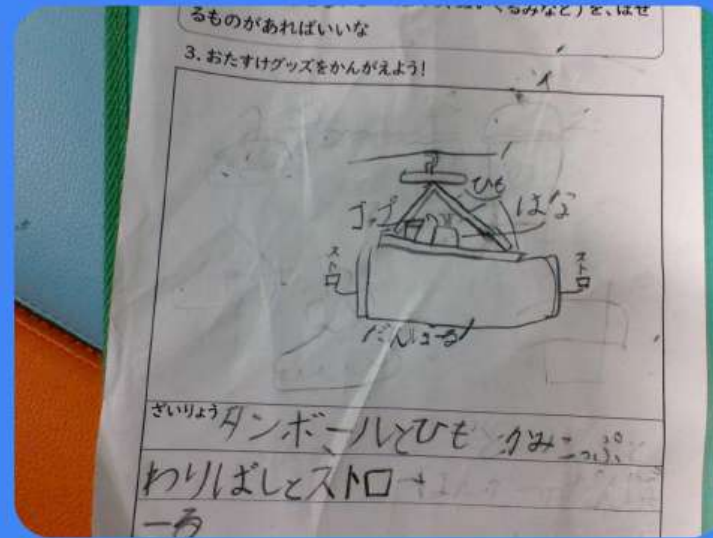 るものがあればいいな
3. おたすけグッズをかんがえよう!
ひも
コップ
はな
スト
スト
だんぼーる
ざいりょう タンボールとひも かみこっぷ
わりばしとストロ
ーろ